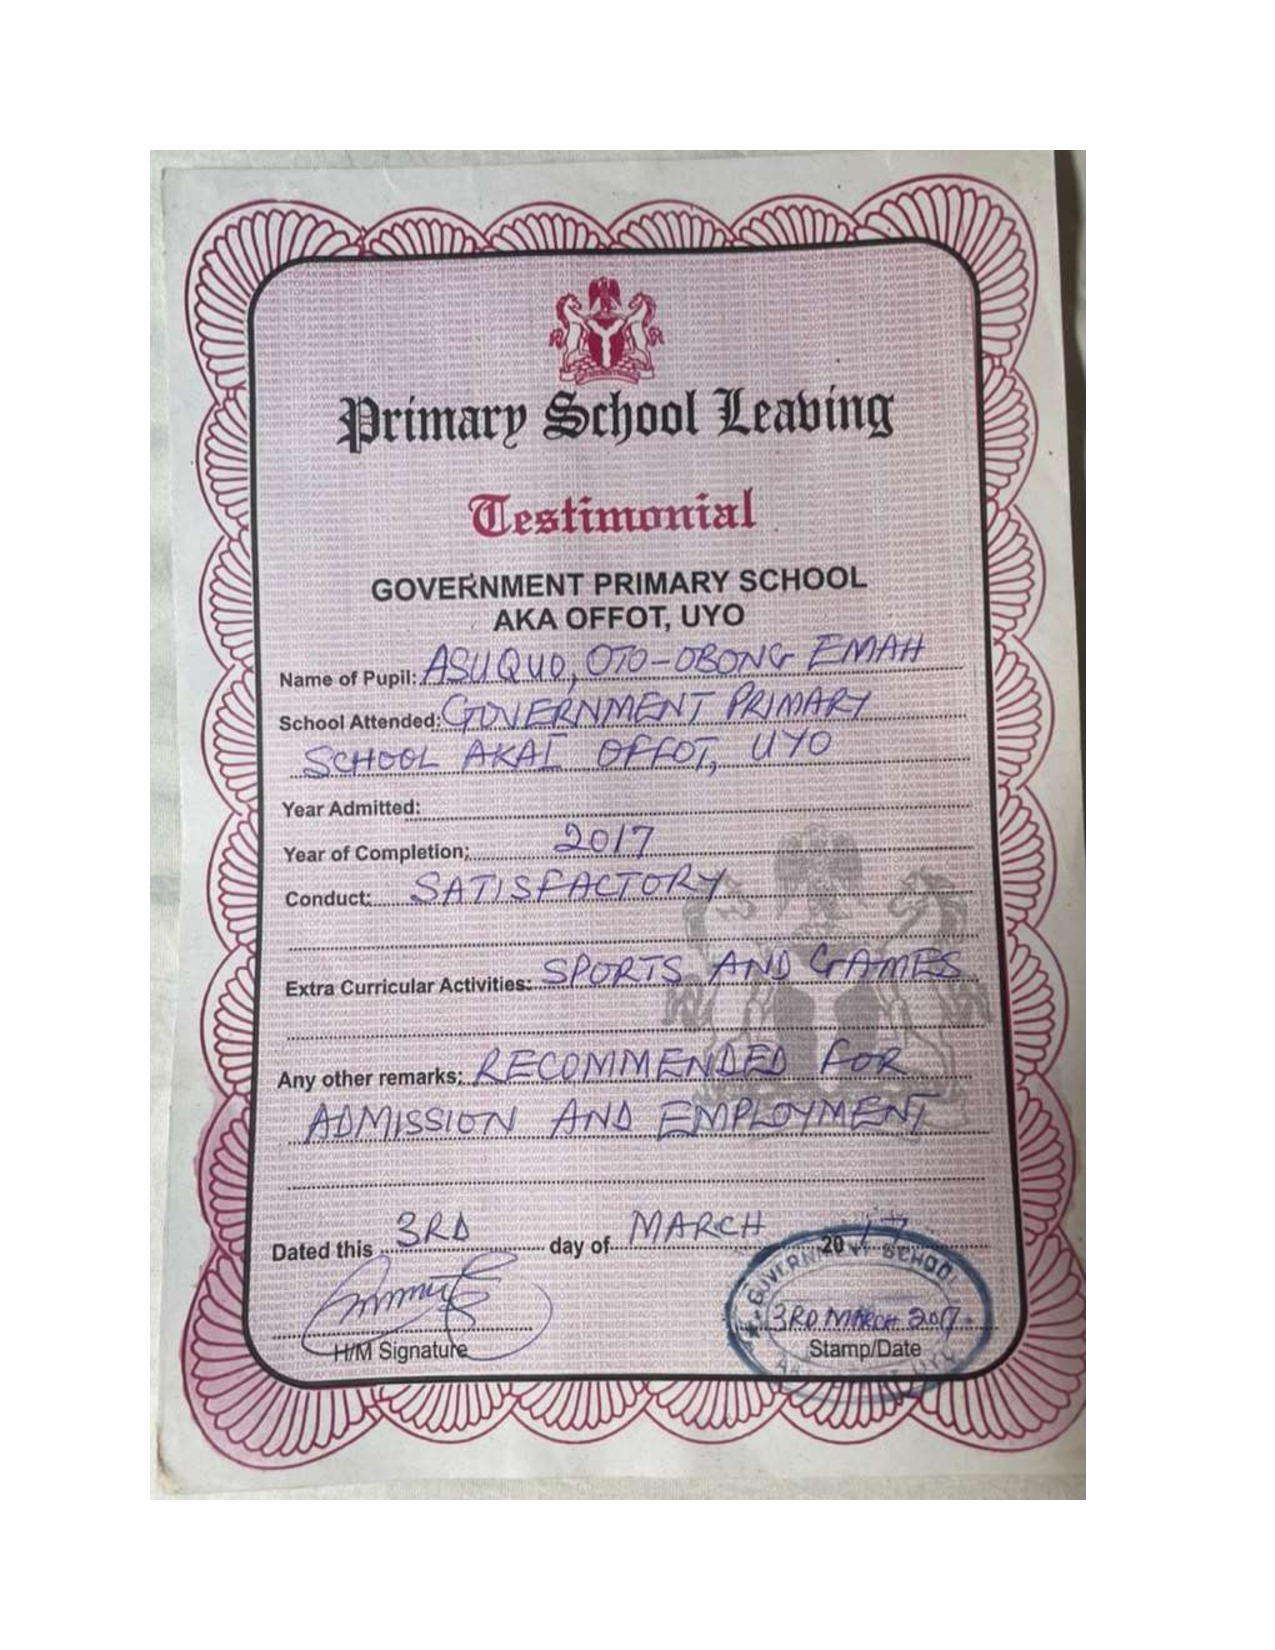 Primary School Leaving
Testimonial
GOVERNMENT PRIMARY SCHOOL
AKA OFFOT, UYO
Name of Pupil: ASUQUO, OTO-OBONG EMAH
School Attended: GOVERNMENT PRIMARY
SCHOOL AKAI OFFOT, UYO
Year Admitted:
Year of Completion: 2017
Conduct: SATISFACTORY
Extra Curricular Activities: SPORTS AND GAMES
Any other remarks: RECOMMENDED FOR
ADMISSION AND EMPLOYMENT
Dated this 3RD day of MARCH 2017
GOVERNMENT SCHOOL
3RD MARCH 2017
H/M Signature Stamp/Date